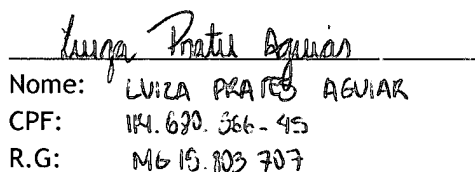 Luiza Prates Aguiar
Nome: LUIZA PRATES AGUIAR
CPF: 114.680.366-45
R.G: MG 15.803 707